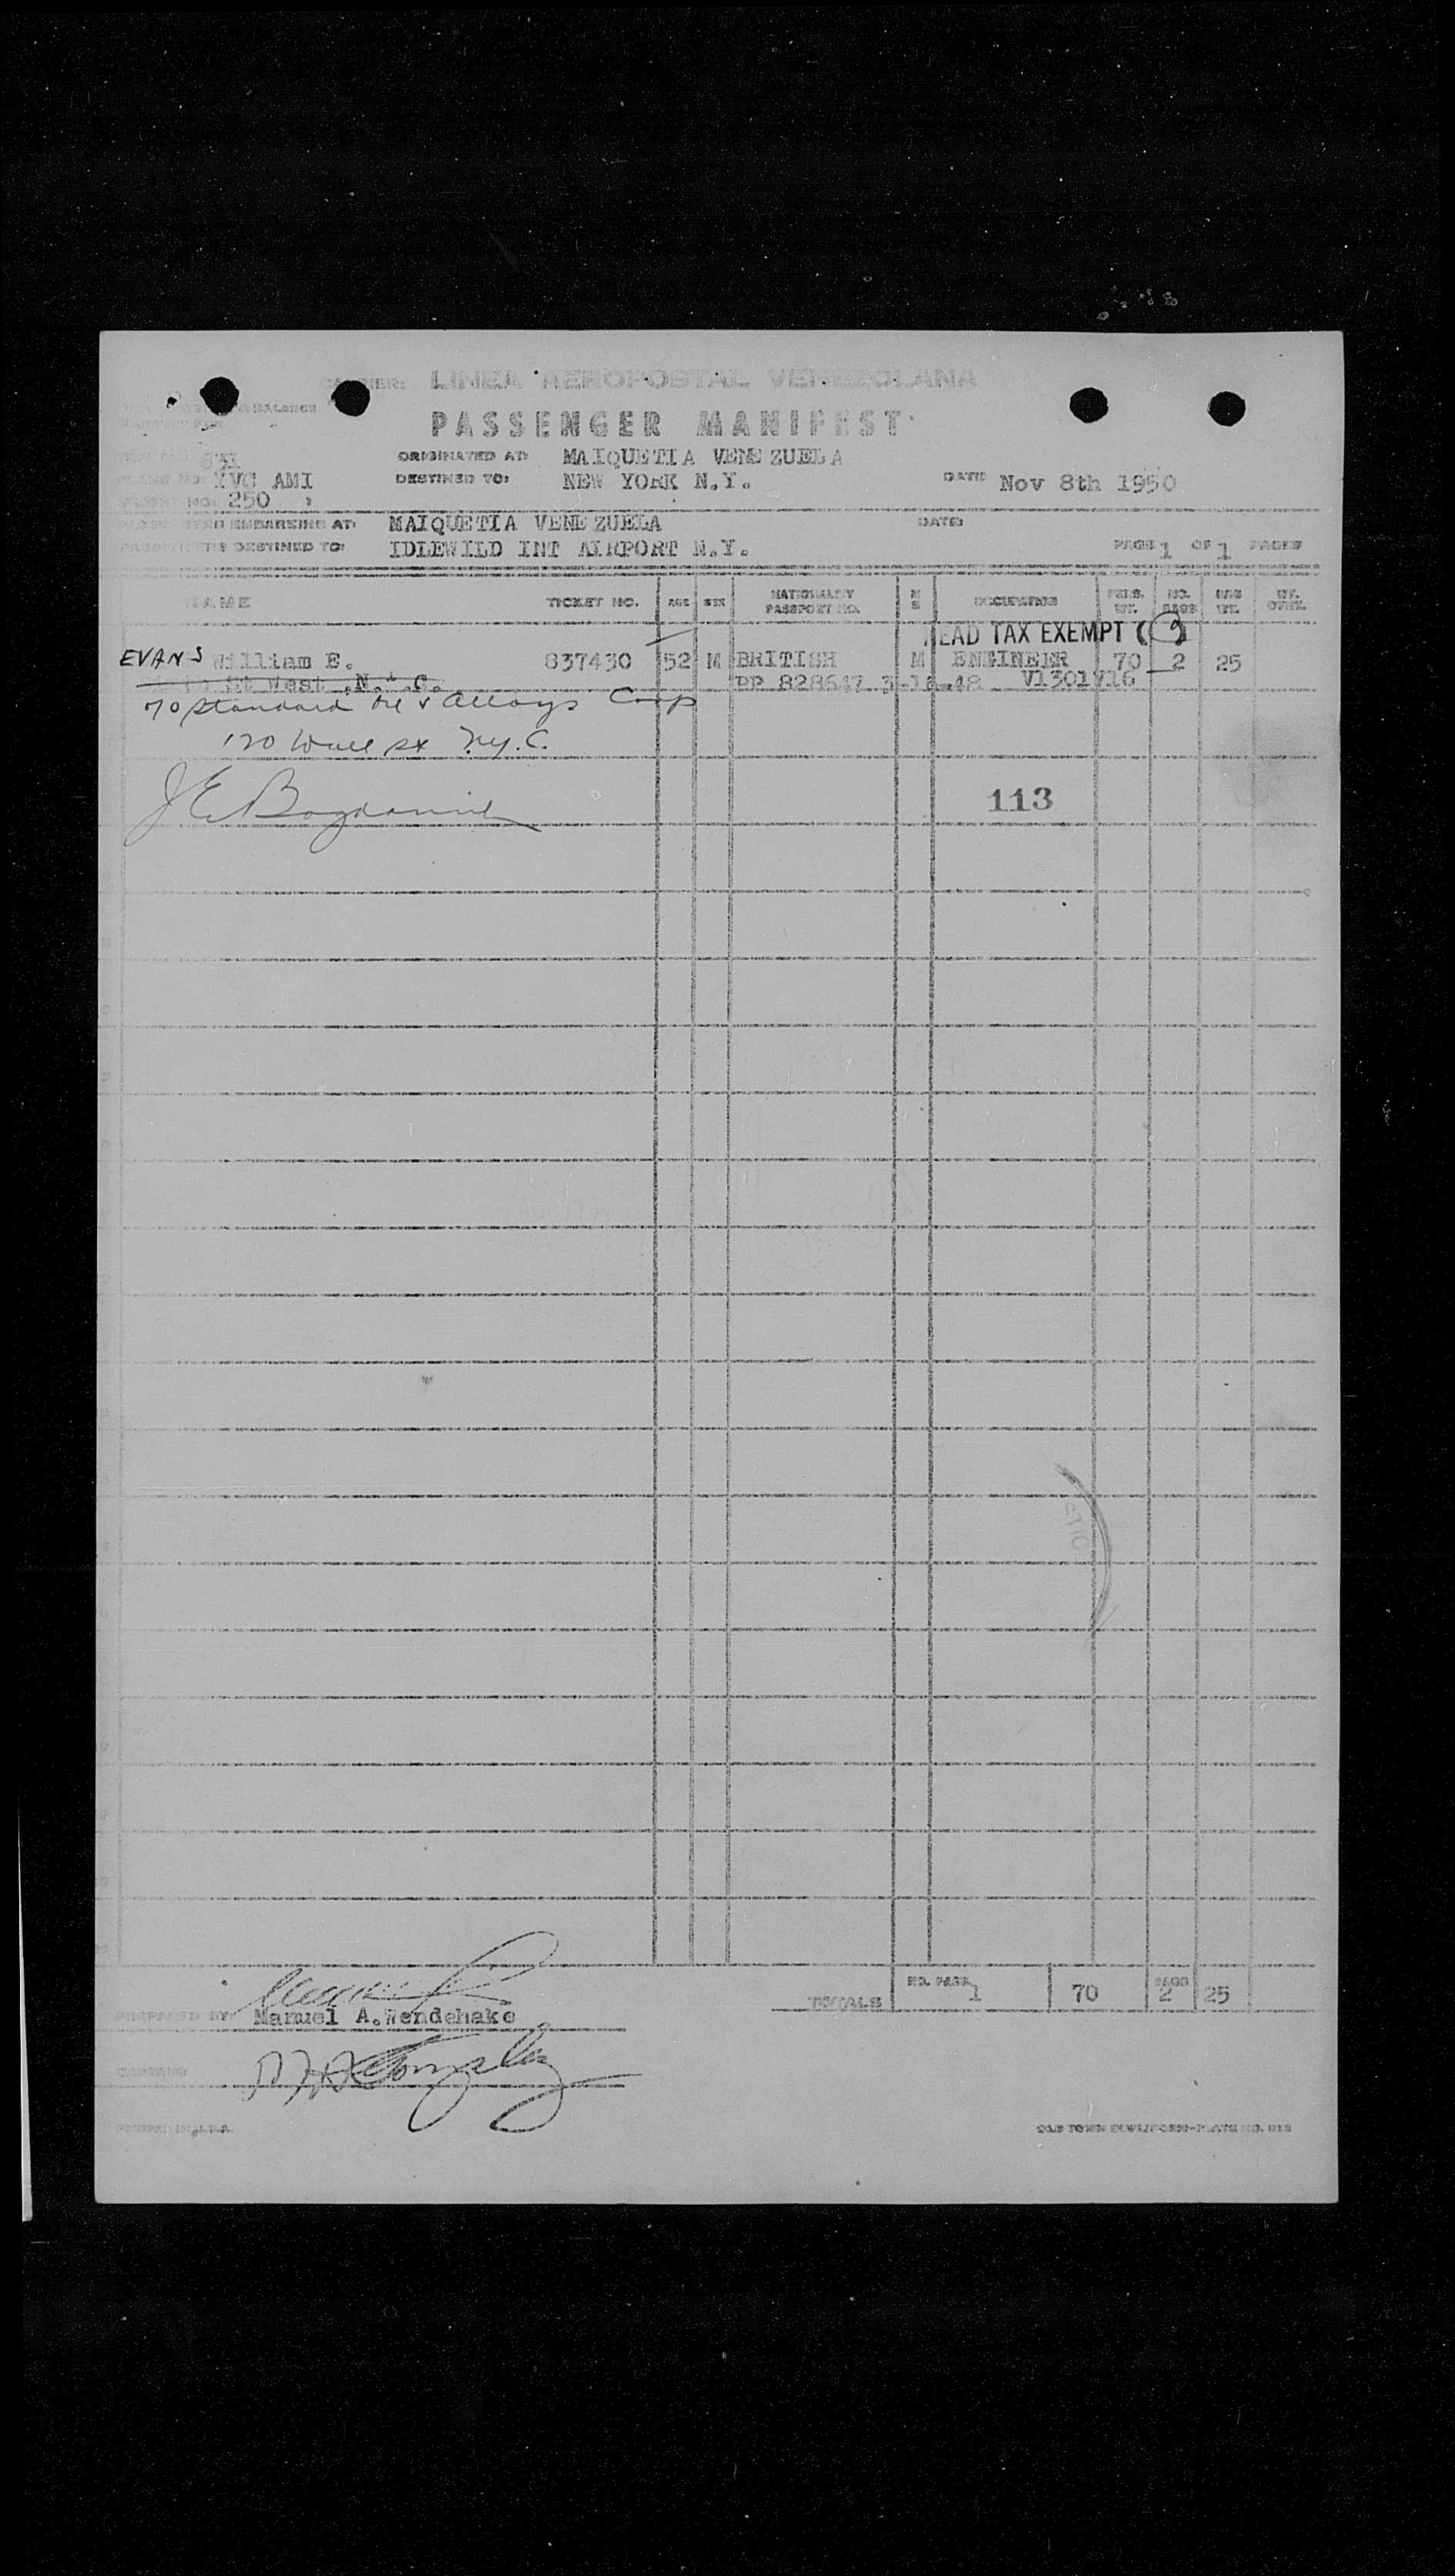 CARRIER: LINEA AEROPOSTAL VENEZOLANA
BALANCE
PASSENGER MANIFEST
531
ORIGINATED AT: MAIQUETIA VENEZUELA
YVC AMI DESTINED TO: NEW YORK N.Y. DATE Nov 8th 1950
NO: 250
EMBARKING AT: MAIQUETIA VENEZUELA DATE:
PASSENGERS DESTINED TO: IDLEWILD INT AIRPORT N.Y. PAGE 1 OF 1 PAGES
NAME TICKET NO. AGE SEX NATIONALITY PASSPORT NO. M S OCCUPATION PERS. WT. NO. BAGS BAG WT. WT. OVER.
HEAD TAX EXEMPT (9)
EVANS William E. 837430 52 M BRITISH M ENGINEER 70 2 25
St West .N.Y.C. PP 828647 V1301716
% Standard Ore & Alloys Corp
120 Wall St N.Y.C.
113
J E
TOTALS NO. PASS. 1 70 BAGS 2 25
PREPARED BY: Manuel A.Wendehake
CAPTAIN:
PRINTED IN U.S.A. OLD TOWN DUPLIFORM-PLATE NO.